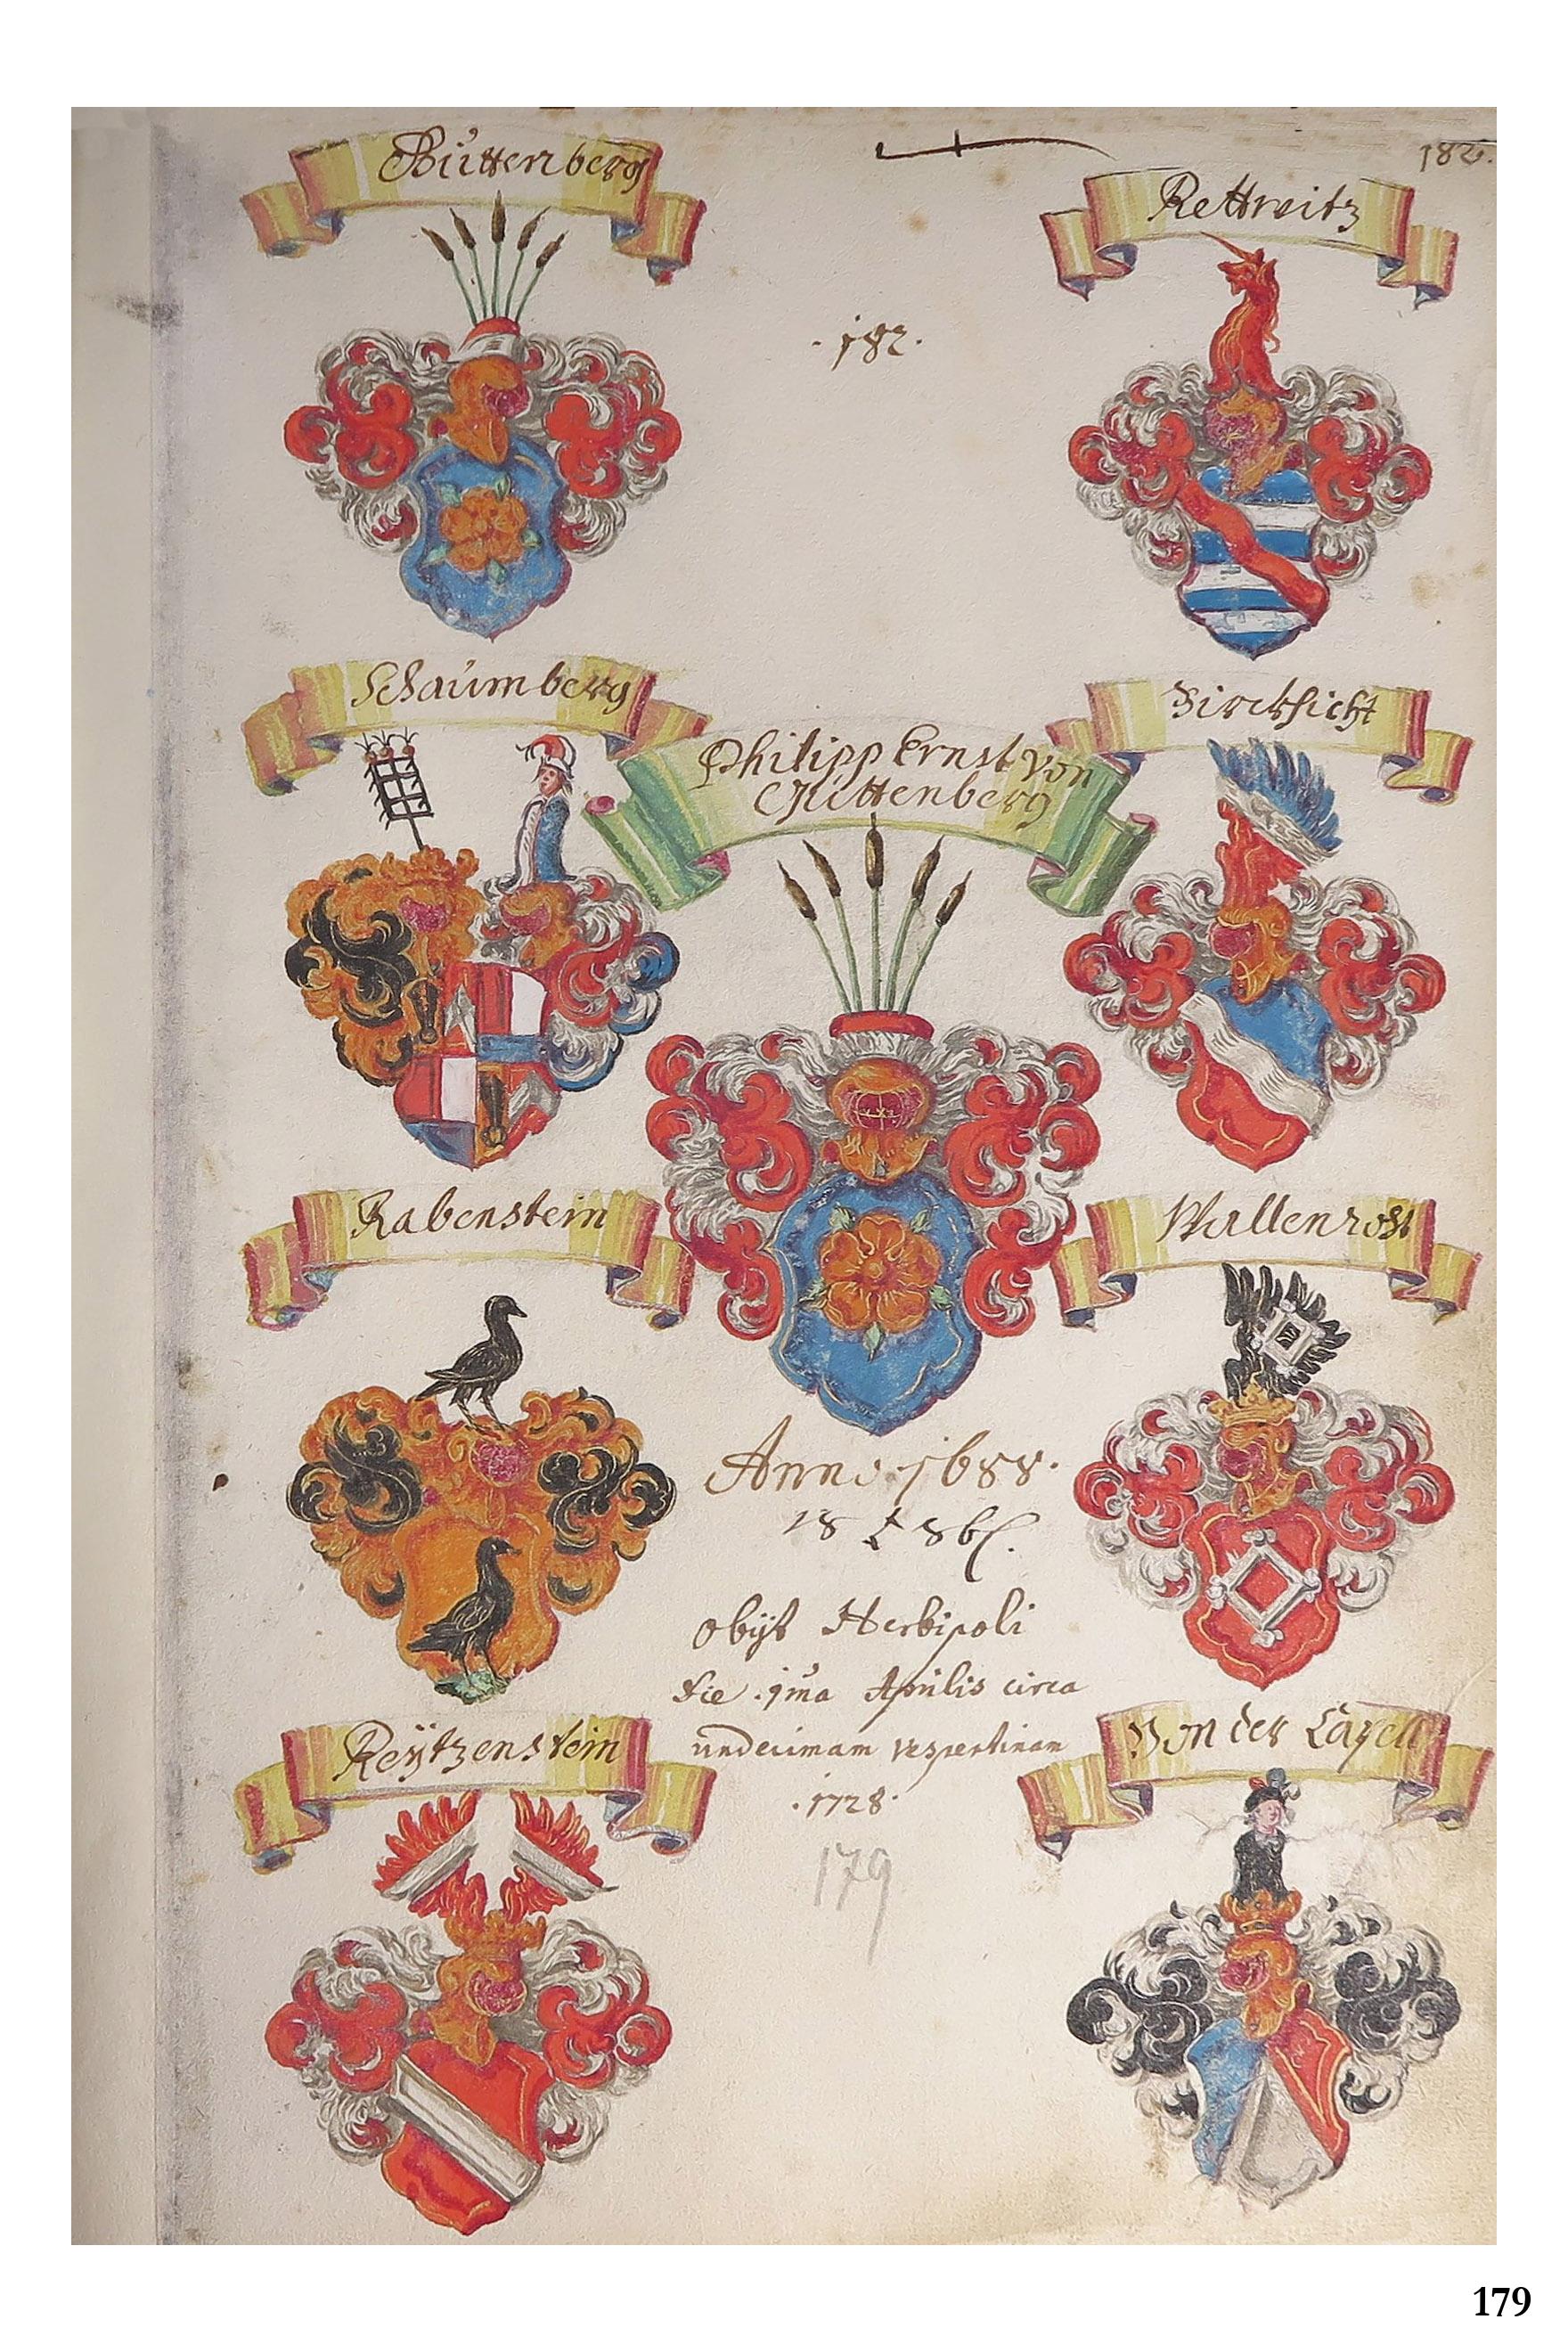 Güttenberg
182.
Rettwitz
.182.
Schaümberg
Philipp Ernst von
Güttenberg
Zirckhicht
Rabenstein
Wallenrost
Anno 1688.
18 8b
obijt Herbipoli
die .1ma Aprilis circa
undecimam vespertinam
.1728.
Reÿtzenstein
Von der Capell
179
179